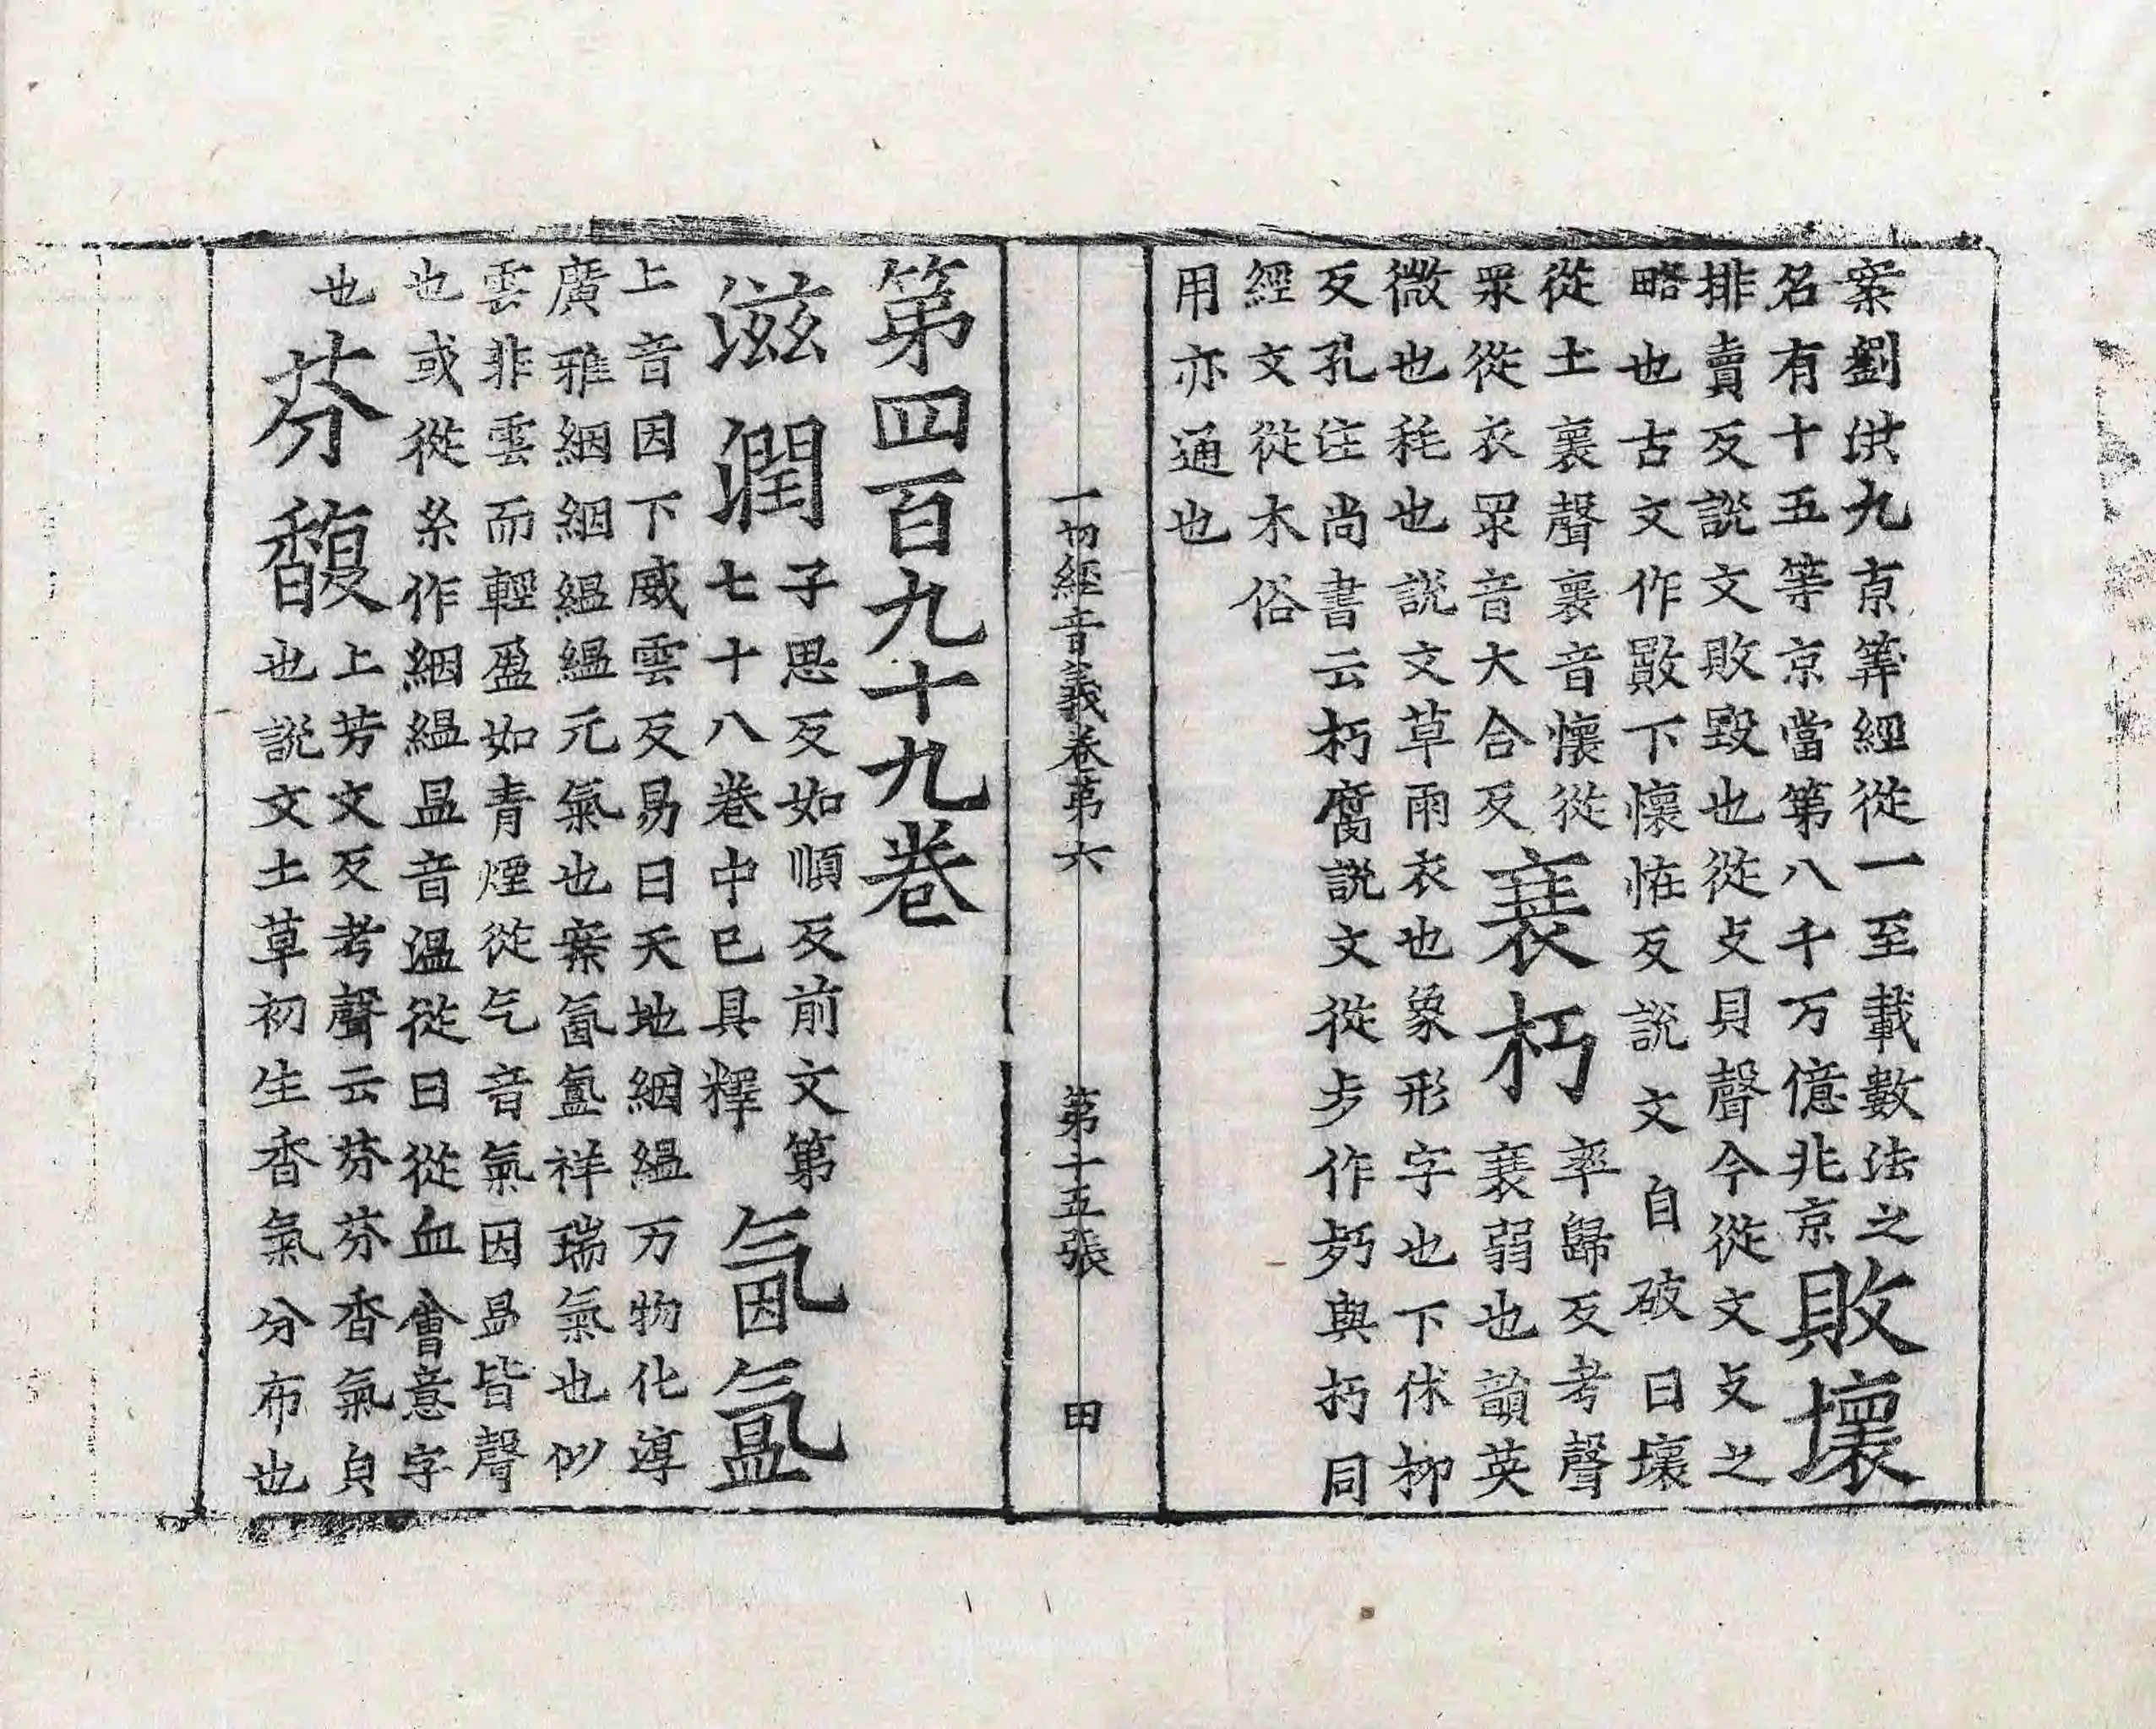 案劉洪九京筭經從一至載數法之
名有十五等京當第八千万億兆京
敗壞
排賣反說文敗毀也從攴貝聲今從文攴之
略也古文作敯下懷恠反說文自破曰壞
從土褱聲褱音懷從
眾從衣眔音大合反
衰朽
率歸反考聲
衰弱也韻英
微也秏也說文草雨衣也象形字也下休柳
反孔注尚書云朽腐說文從歺作㱙與朽同
經文從木俗
用亦通也
一切經音義卷第六 第十五張 田
第四百九十九卷
滋潤
子思反如順反前文第
七十八卷中已具釋
氤氳
上音因下威雲反易曰天地絪縕万物化淳
廣雅絪絪縕縕元氣也案氤氳祥瑞氣也似
雲非雲而輕盈如青煙從气音氣因昷皆聲
也或從糸作絪縕昷音溫從日從血會意字
也
芬馥
上芳文反考聲云芬芬香氣皃
也說文土草初生香氣分布也